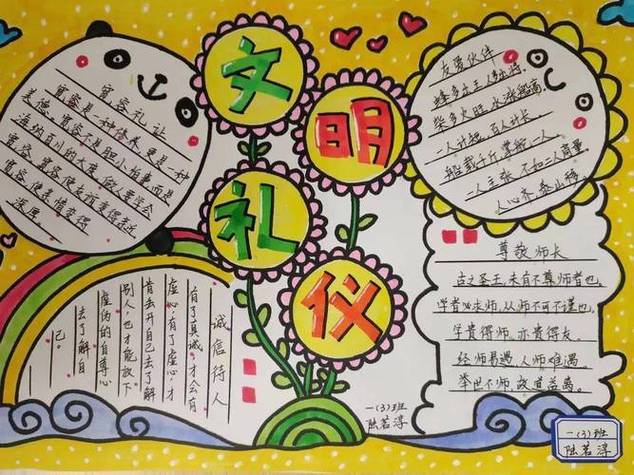 文明
礼仪
宽容礼让
宽容是一种修养,更是一种
美德。宽容不是胆小怕事而是
海纳百川的大度,做人要学会
宽容,宽容使友谊变得永远
宽容使亲情变得
深厚。
友爱伙伴
蜂多出王,人多出将。
柴多火旺,水涨船高。
一人计短,百人计长。
船载千斤,掌舵一人。
一人主张,不如三人商量。
人心齐,泰山移。
诚信待人
有了真诚,才会有
虚心,有了虚心,才
肯丢开自己去了解
别人,也才能放下
虚伪的自尊心
去了解自
己。
尊敬师长
古之圣王,未有不尊师者也。
学者必求师,从师不可不谨也。
学贵得师,亦贵得友。
经师易遇,人师难遇。
举世不师,故道益离。
一(3)班
陆若淳
一(3)班
陆若淳